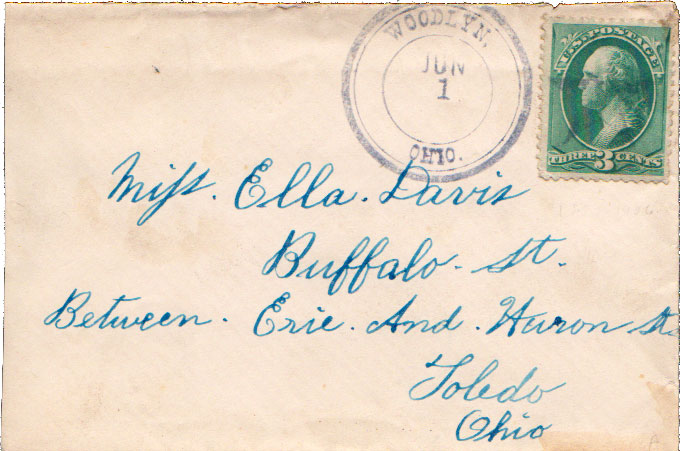 WOODLYN.
JUN
1
OHIO.
U.S. POSTAGE
THREE 3 CENTS
Miss. Ella. Davis
Buffalo. St.
Between. Erie. And. Huron St.
Toledo
Ohio